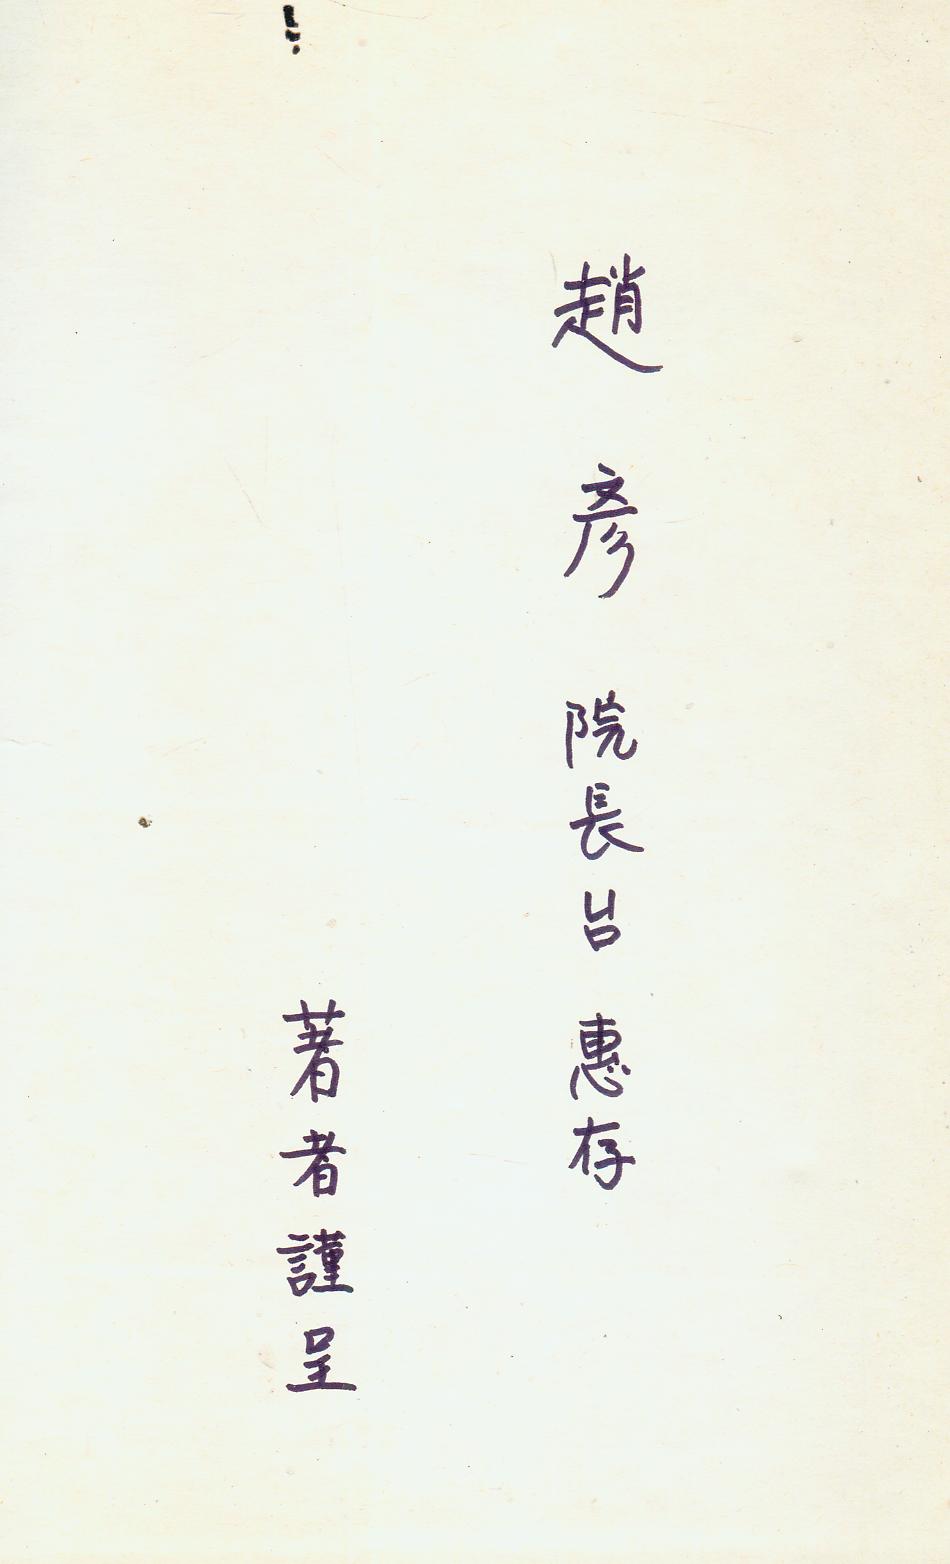 趙 彥 院長台 惠存
著者謹呈